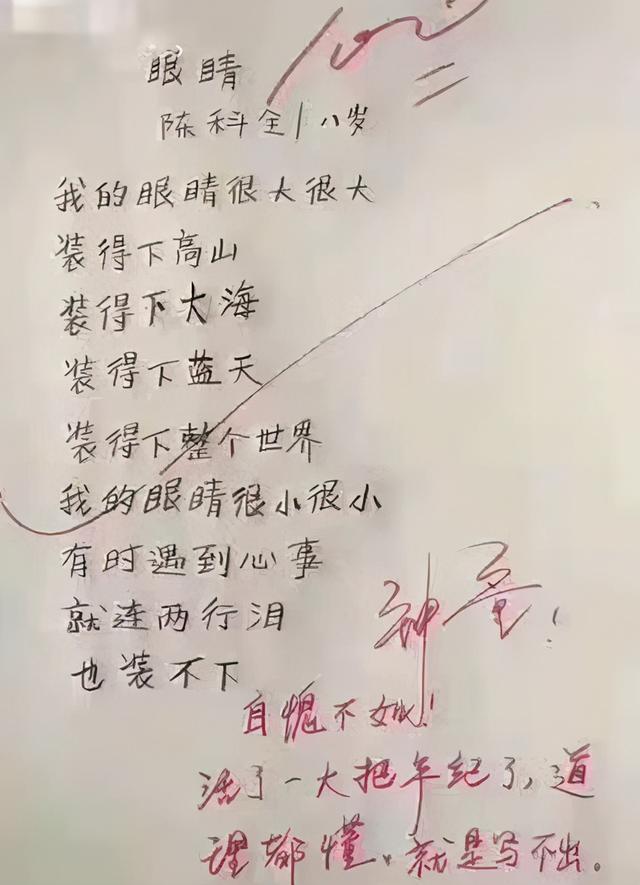 100
眼睛
陈科全/八岁
我的眼睛很大很大
装得下高山
装得下大海
装得下蓝天
装得下整个世界
我的眼睛很小很小
有时遇到心事
就连两行泪
也装不下
神童!
自愧不如!
活了一大把年纪了,道
理都懂、就是写不出。